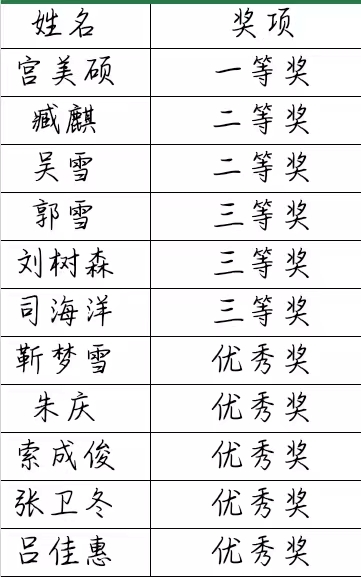 姓名 奖项
宫美硕 一等奖
臧麒 二等奖
吴雪 二等奖
郭雪 三等奖
刘树森 三等奖
司海洋 三等奖
靳梦雪 优秀奖
朱庆 优秀奖
索成俊 优秀奖
张卫冬 优秀奖
吕佳惠 优秀奖